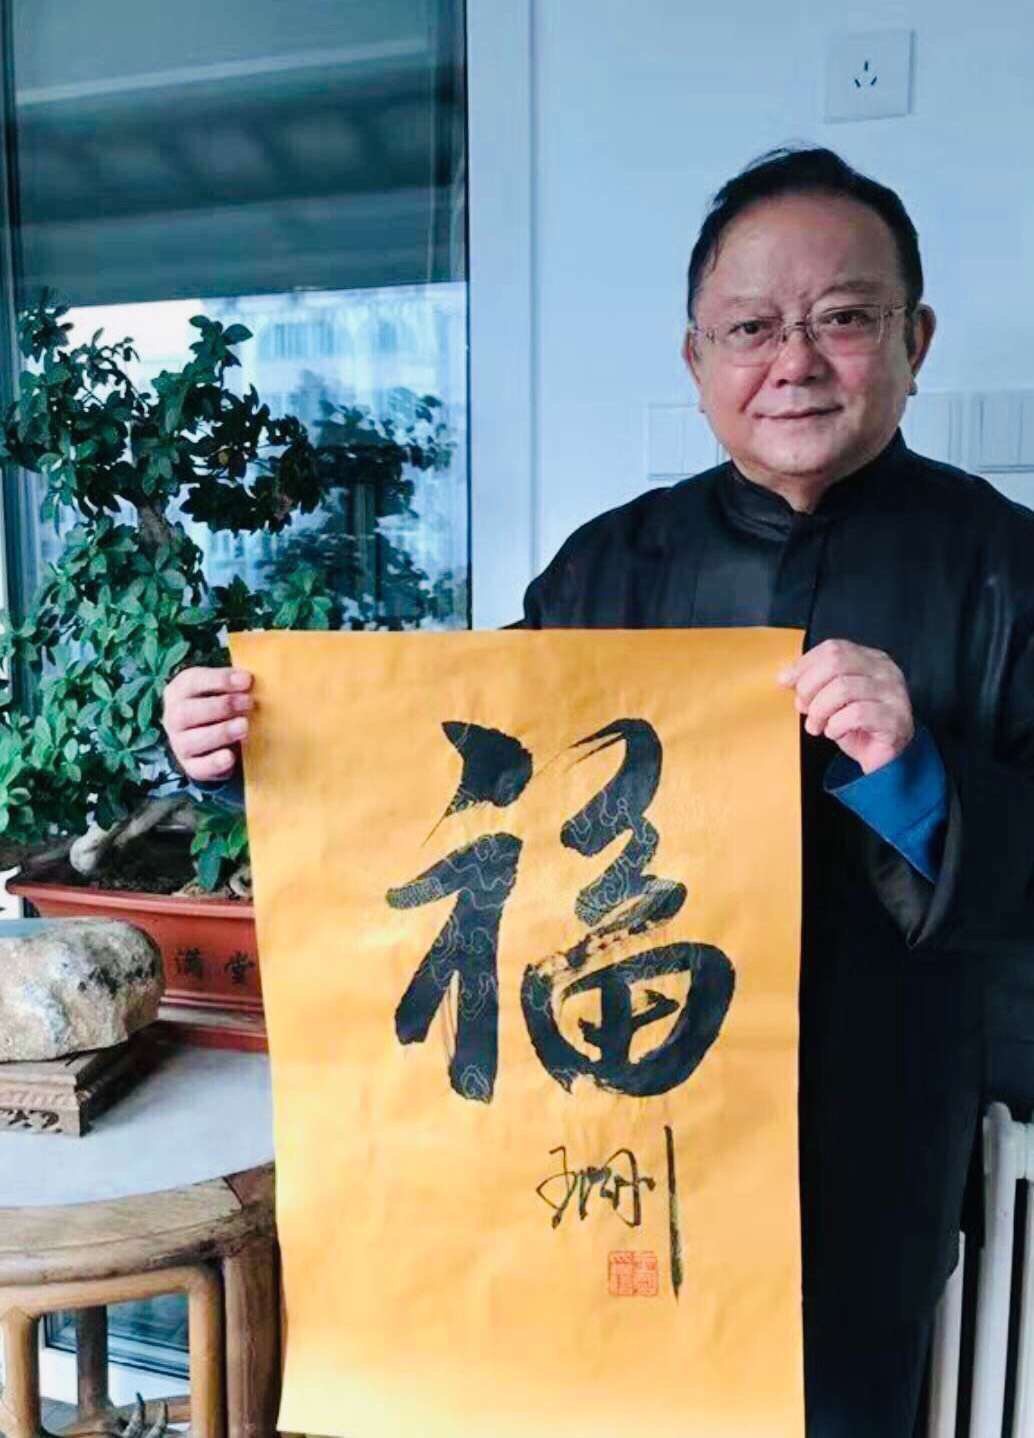 福
王刚
满堂